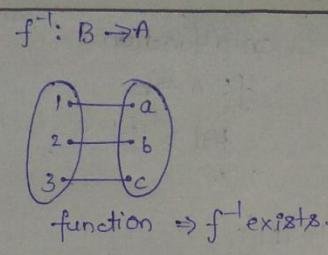 f⁻¹: B → A
1 a
2 b
3 c
function ⇒ f⁻¹ exists.